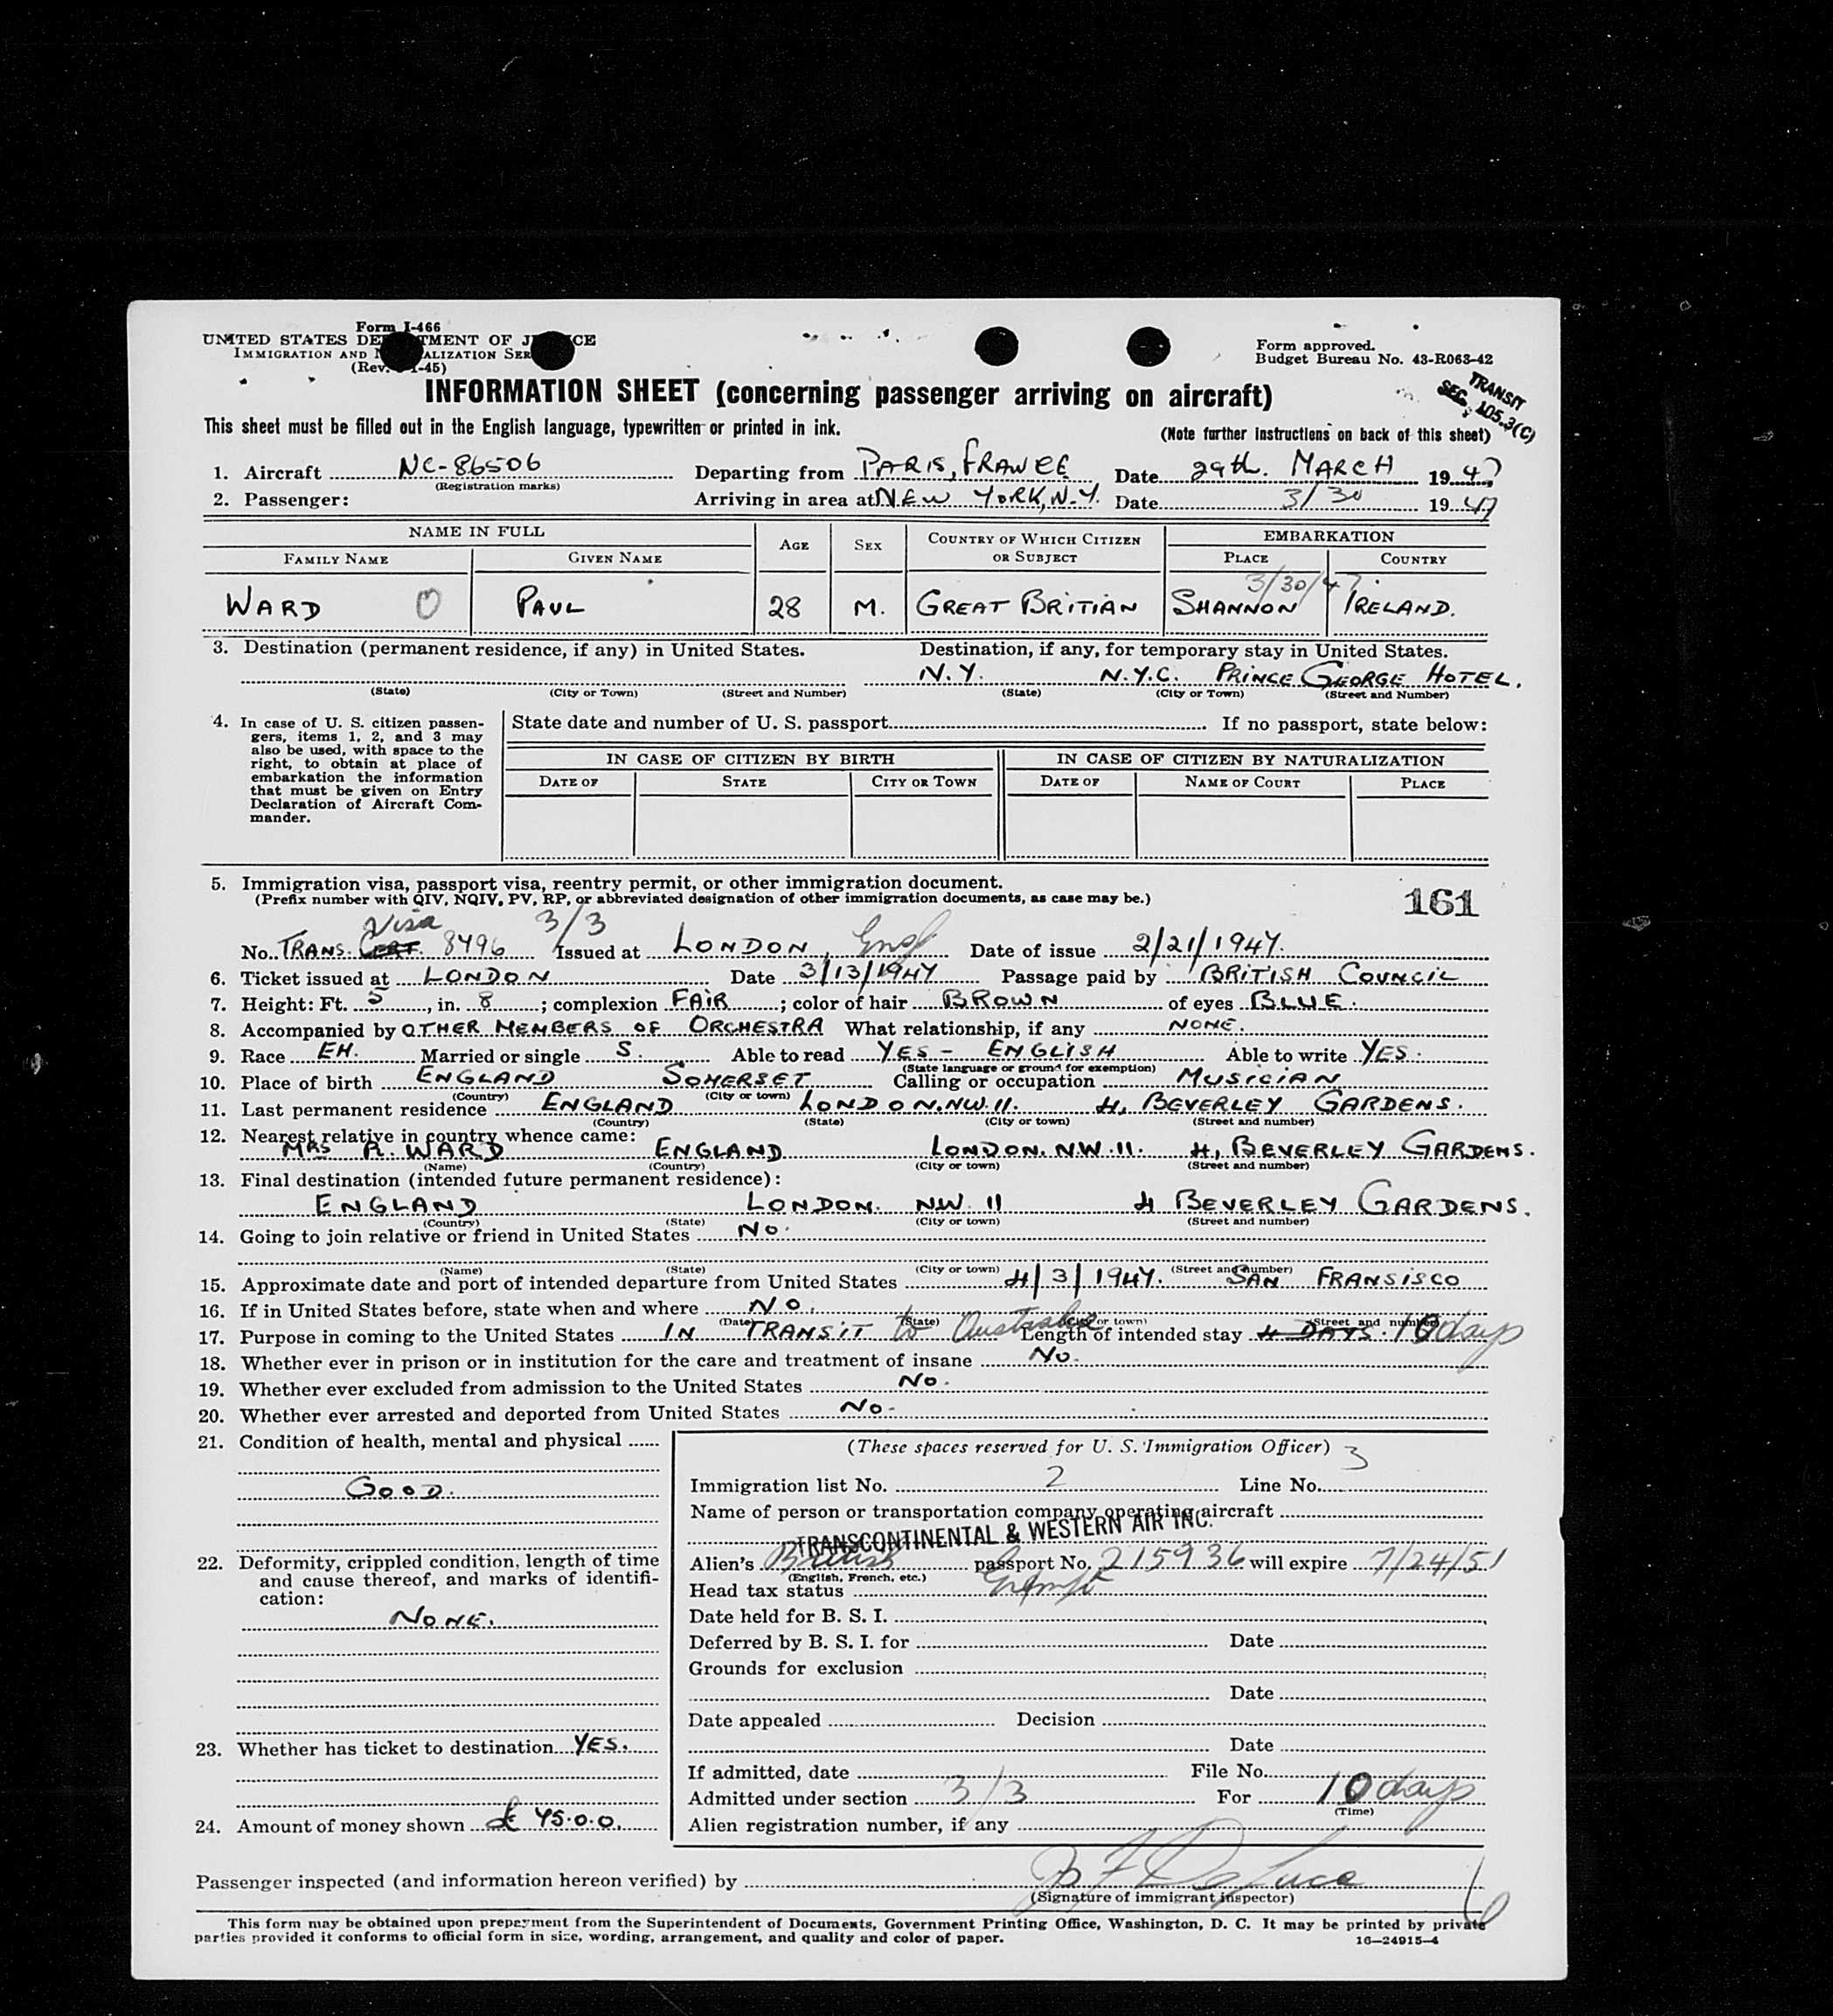 Form I-466
UNITED STATES DE TMENT OF J CE
IMMIGRATION AND N ALIZATION SER
(Rev. 1-45)
Form approved.
Budget Bureau No. 43-R063-42
INFORMATION SHEET (concerning passenger arriving on aircraft)
TRANSIT
SEC. 105.3(C)
This sheet must be filled out in the English language, typewritten or printed in ink.
(Note further instructions on back of this sheet)
1. Aircraft NC-86506 Departing from PARIS, FRANCE Date 29th. MARCH 1947
(Registration marks)
2. Passenger: Arriving in area at NEW YORK, N.Y. Date 3/30 1947
NAME IN FULL AGE SEX COUNTRY OF WHICH CITIZEN OR SUBJECT EMBARKATION
FAMILY NAME GIVEN NAME PLACE COUNTRY
3/30/47
WARD O PAUL 28 M. GREAT BRITIAN SHANNON IRELAND.
3. Destination (permanent residence, if any) in United States. Destination, if any, for temporary stay in United States.
N.Y. N.Y.C. PRINCE GEORGE HOTEL.
(State) (City or Town) (Street and Number) (State) (City or Town) (Street and Number)
4. In case of U. S. citizen passen-
gers, items 1, 2, and 3 may
also be used, with space to the
right, to obtain at place of
embarkation the information
that must be given on Entry
Declaration of Aircraft Com-
mander.
State date and number of U. S. passport If no passport, state below:
IN CASE OF CITIZEN BY BIRTH IN CASE OF CITIZEN BY NATURALIZATION
DATE OF STATE CITY OR TOWN DATE OF NAME OF COURT PLACE
5. Immigration visa, passport visa, reentry permit, or other immigration document.
(Prefix number with QIV, NQIV, PV, RP, or abbreviated designation of other immigration documents, as case may be.)
161
Visa 3/3
No. TRANS. CERT. 8496 Issued at LONDON, Eng. Date of issue 2/21/1947.
6. Ticket issued at LONDON Date 3/13/1947 Passage paid by BRITISH COUNCIL
7. Height: Ft. 5, in. 8; complexion FAIR; color of hair BROWN of eyes BLUE.
8. Accompanied by OTHER MEMBERS OF ORCHESTRA What relationship, if any NONE.
9. Race EH. Married or single S. Able to read YES - ENGLISH Able to write YES.
(State language or ground for exemption)
10. Place of birth ENGLAND SOMERSET Calling or occupation MUSICIAN
(Country) (City or town)
11. Last permanent residence ENGLAND LONDON. NW. 11. 4, BEVERLEY GARDENS.
(Country) (State) (City or town) (Street and number)
12. Nearest relative in country whence came:
MRS R. WARD ENGLAND LONDON. N.W. 11. 4, BEVERLEY GARDENS.
(Name) (Country) (City or town) (Street and number)
13. Final destination (intended future permanent residence):
ENGLAND LONDON. NW. 11 4 BEVERLEY GARDENS.
(Country) (State) (City or town) (Street and number)
14. Going to join relative or friend in United States NO.
(Name) (State) (City or town) (Street and number)
15. Approximate date and port of intended departure from United States 4/3/1947. SAN FRANSISCO
16. If in United States before, state when and where NO.
(Date) (State) (City or town) (Street and number)
17. Purpose in coming to the United States IN TRANSIT to Australia Length of intended stay 4 DAYS. 10 days
18. Whether ever in prison or in institution for the care and treatment of insane NO.
19. Whether ever excluded from admission to the United States NO.
20. Whether ever arrested and deported from United States NO.
21. Condition of health, mental and physical
GOOD.
22. Deformity, crippled condition, length of time
and cause thereof, and marks of identifi-
cation:
NONE.
23. Whether has ticket to destination YES.
24. Amount of money shown £ 45.0.0.
(These spaces reserved for U. S. Immigration Officer)
Immigration list No. 2 Line No. 3
Name of person or transportation company operating aircraft
TRANSCONTINENTAL & WESTERN AIR INC.
Alien's British passport No. 215936 will expire 7/24/51
(English, French, etc.)
Head tax status Exempt
Date held for B. S. I.
Deferred by B. S. I. for Date
Grounds for exclusion
Date
Date appealed Decision
Date
If admitted, date File No.
Admitted under section 3/3 For 10 days
(Time)
Alien registration number, if any
Passenger inspected (and information hereon verified) by
(Signature of immigrant inspector)
This form may be obtained upon prepayment from the Superintendent of Documents, Government Printing Office, Washington, D. C. It may be printed by private
parties provided it conforms to official form in size, wording, arrangement, and quality and color of paper.
16—24915-4